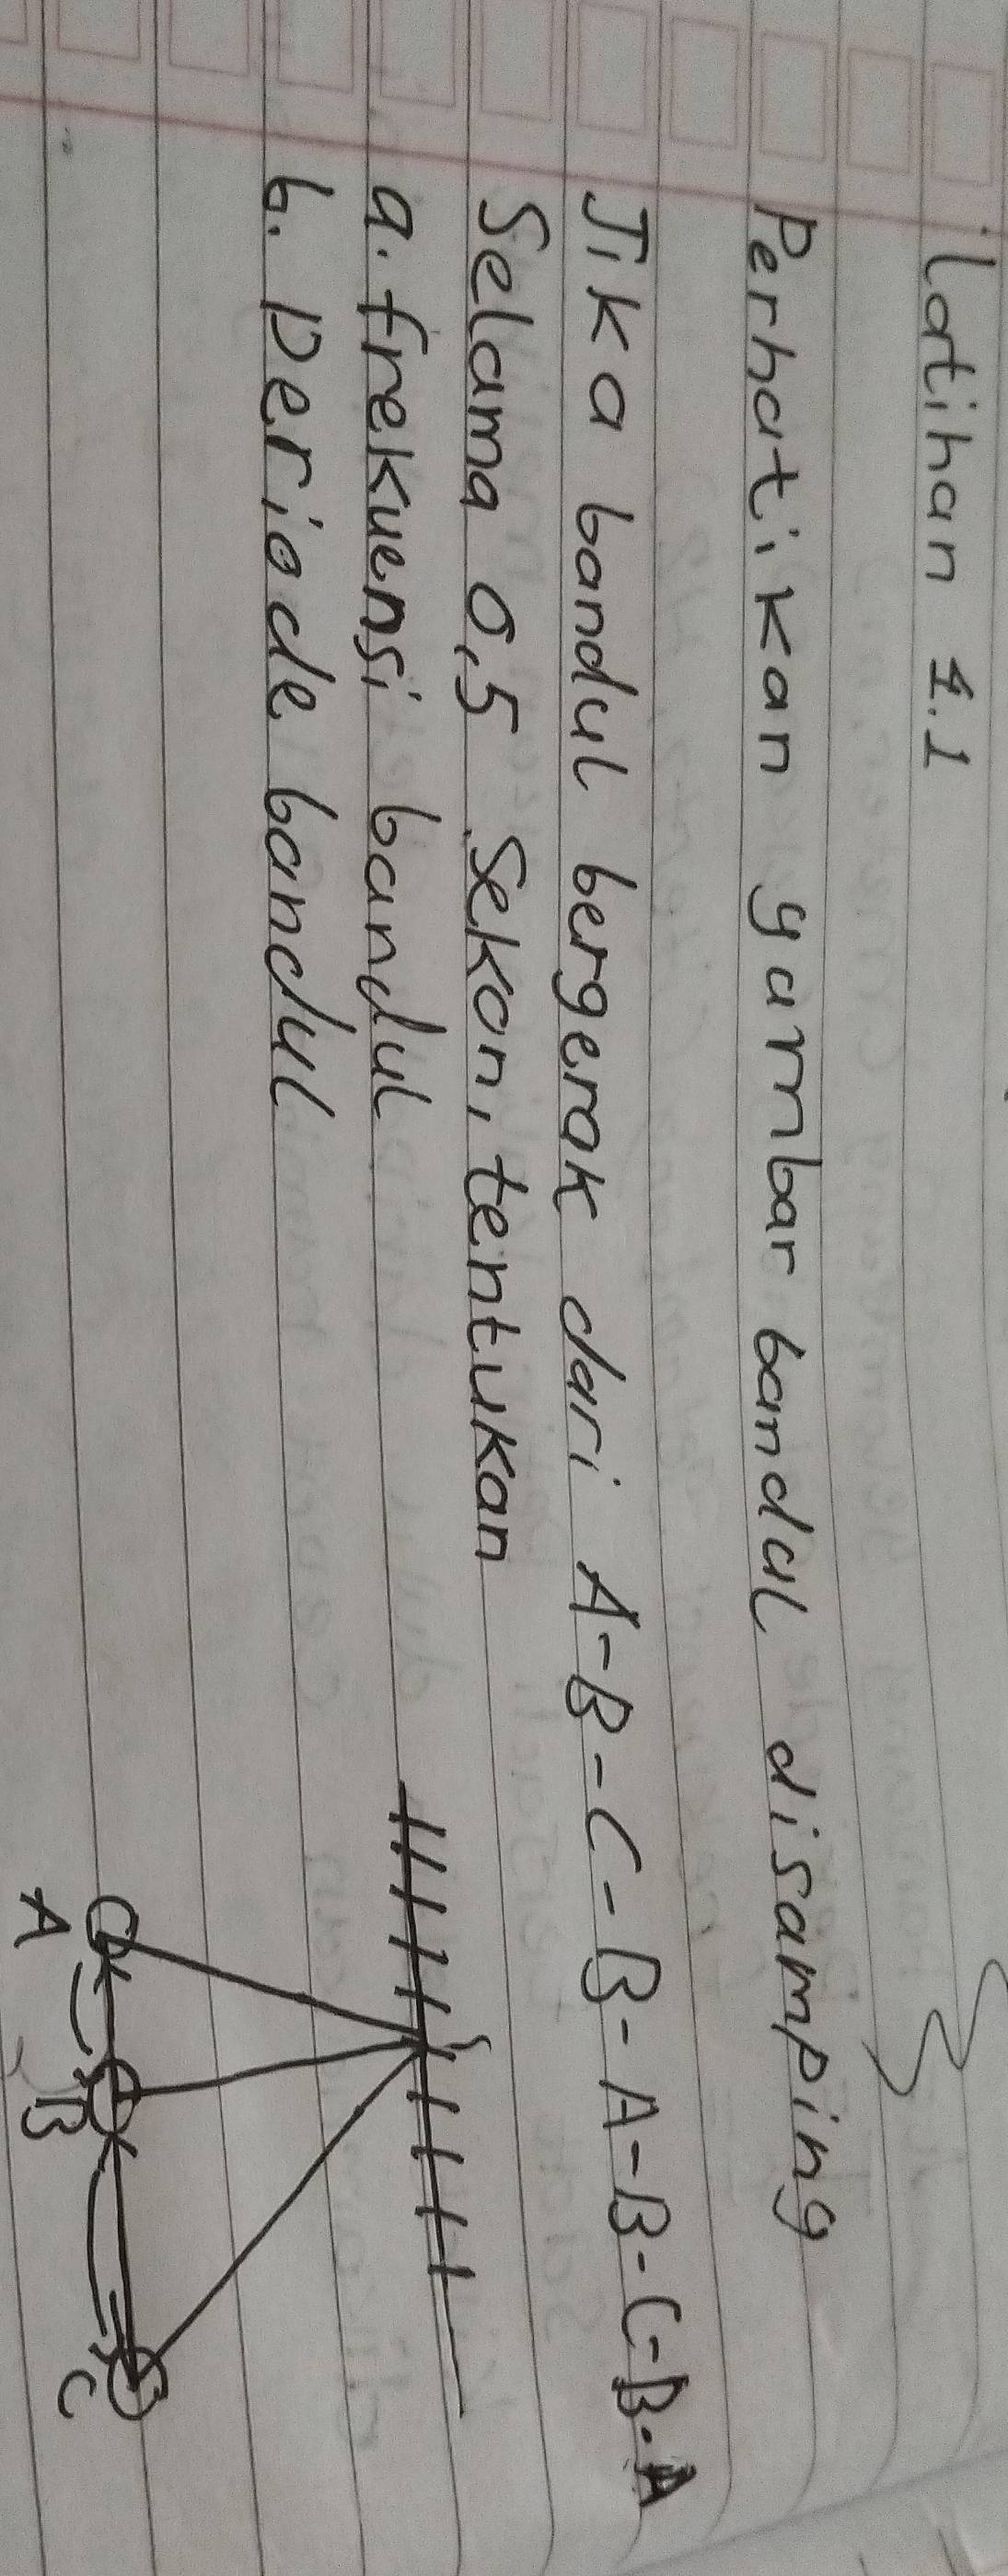 Latihan 1.1
Perhatikan gambar bandul disamping
Jika bandul bergerak dari A-B-C-B-A-B-C-B-A
Selama 0,5 Sekon, tentukan
a. frekuensi bandul
b. Periode bandul
A B C